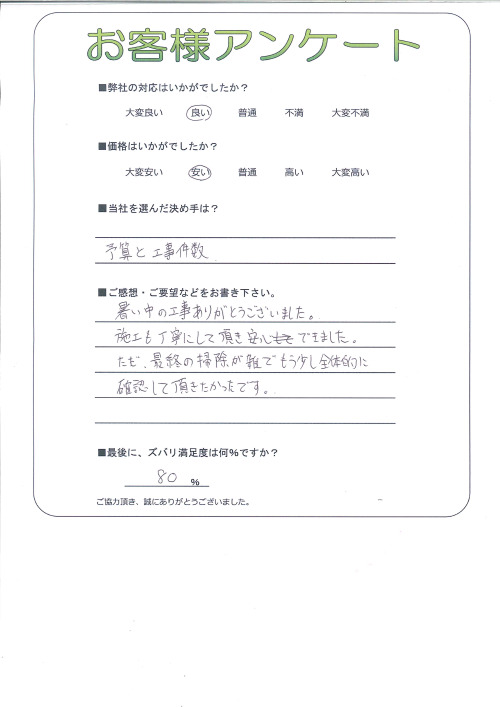 お客様アンケート
■弊社の対応はいかがでしたか？
大変良い 良い 普通 不満 大変不満
■価格はいかがでしたか？
大変安い 安い 普通 高い 大変高い
■当社を選んだ決め手は？
予算と工事件数
■ご感想・ご要望などをお書き下さい。
暑い中の工事ありがとうございました。
施工も丁寧にして頂き安心できました。
ただ、最終の掃除が雑でもう少し全体的に
確認して頂きたかったです。
■最後に、ズバリ満足度は何％ですか？
80 %
ご協力頂き、誠にありがとうございました。